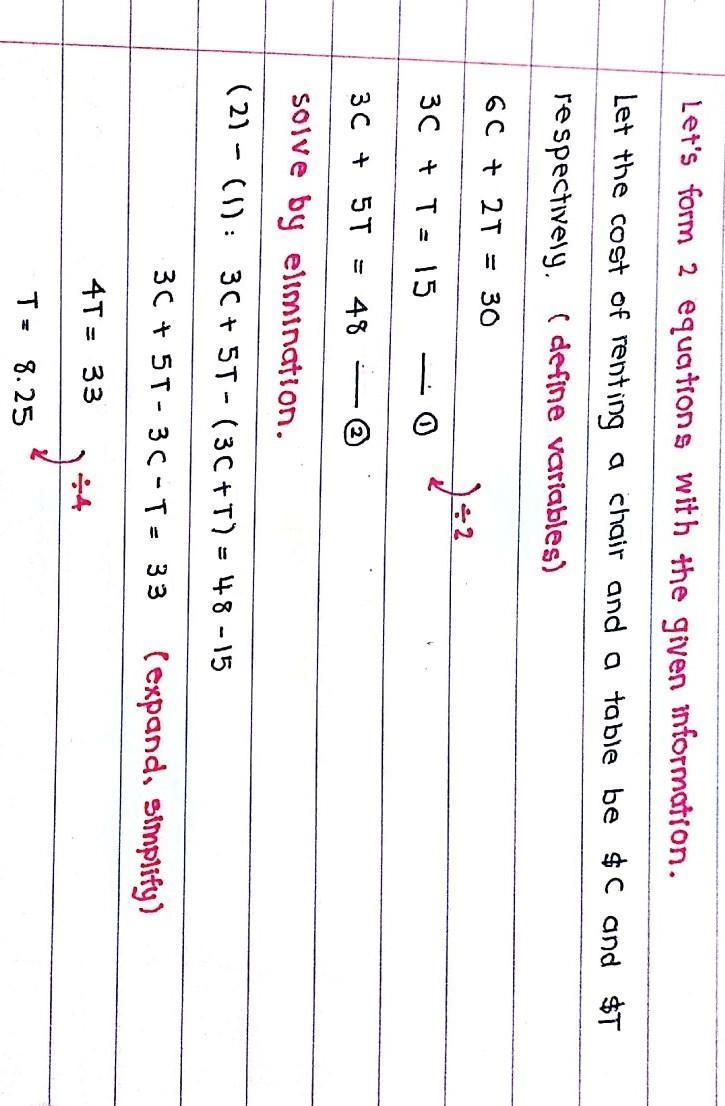 Let's form 2 equations with the given information.
Let the cost of renting a chair and a table be $C and $T
respectively. (define variables)
6C + 2T = 30
÷2
3C + T = 15 — ①
3C + 5T = 48 — ②
solve by elimination.
(2) - (1): 3C + 5T - (3C + T) = 48 - 15
3C + 5T - 3C - T = 33 (expand, simplify)
4T = 33
÷4
T = 8.25